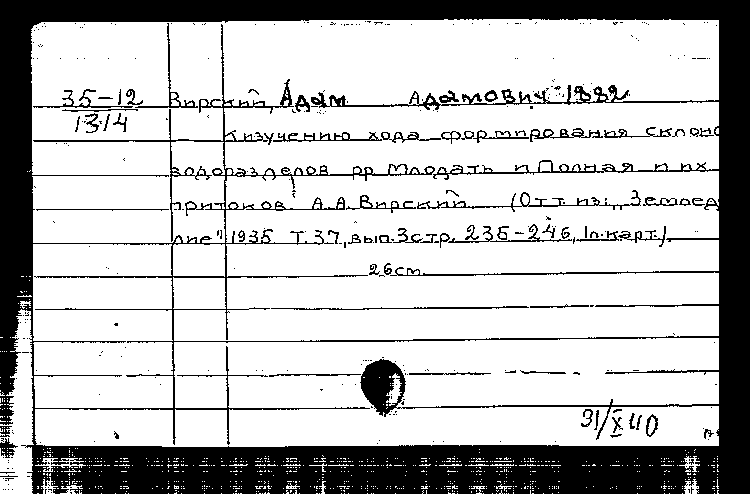 35-12 Вирский, Адам Адамович 1882
1314
К изучению хода формирования склоно
водоразделов рр Млодать и Полная и их
притоков. А.А. Вирский (Отт из: „Землед
лие" 1935 Т. 37, вып. 3 стр. 235-246, 1л. карт.).
26см.
31/X 40